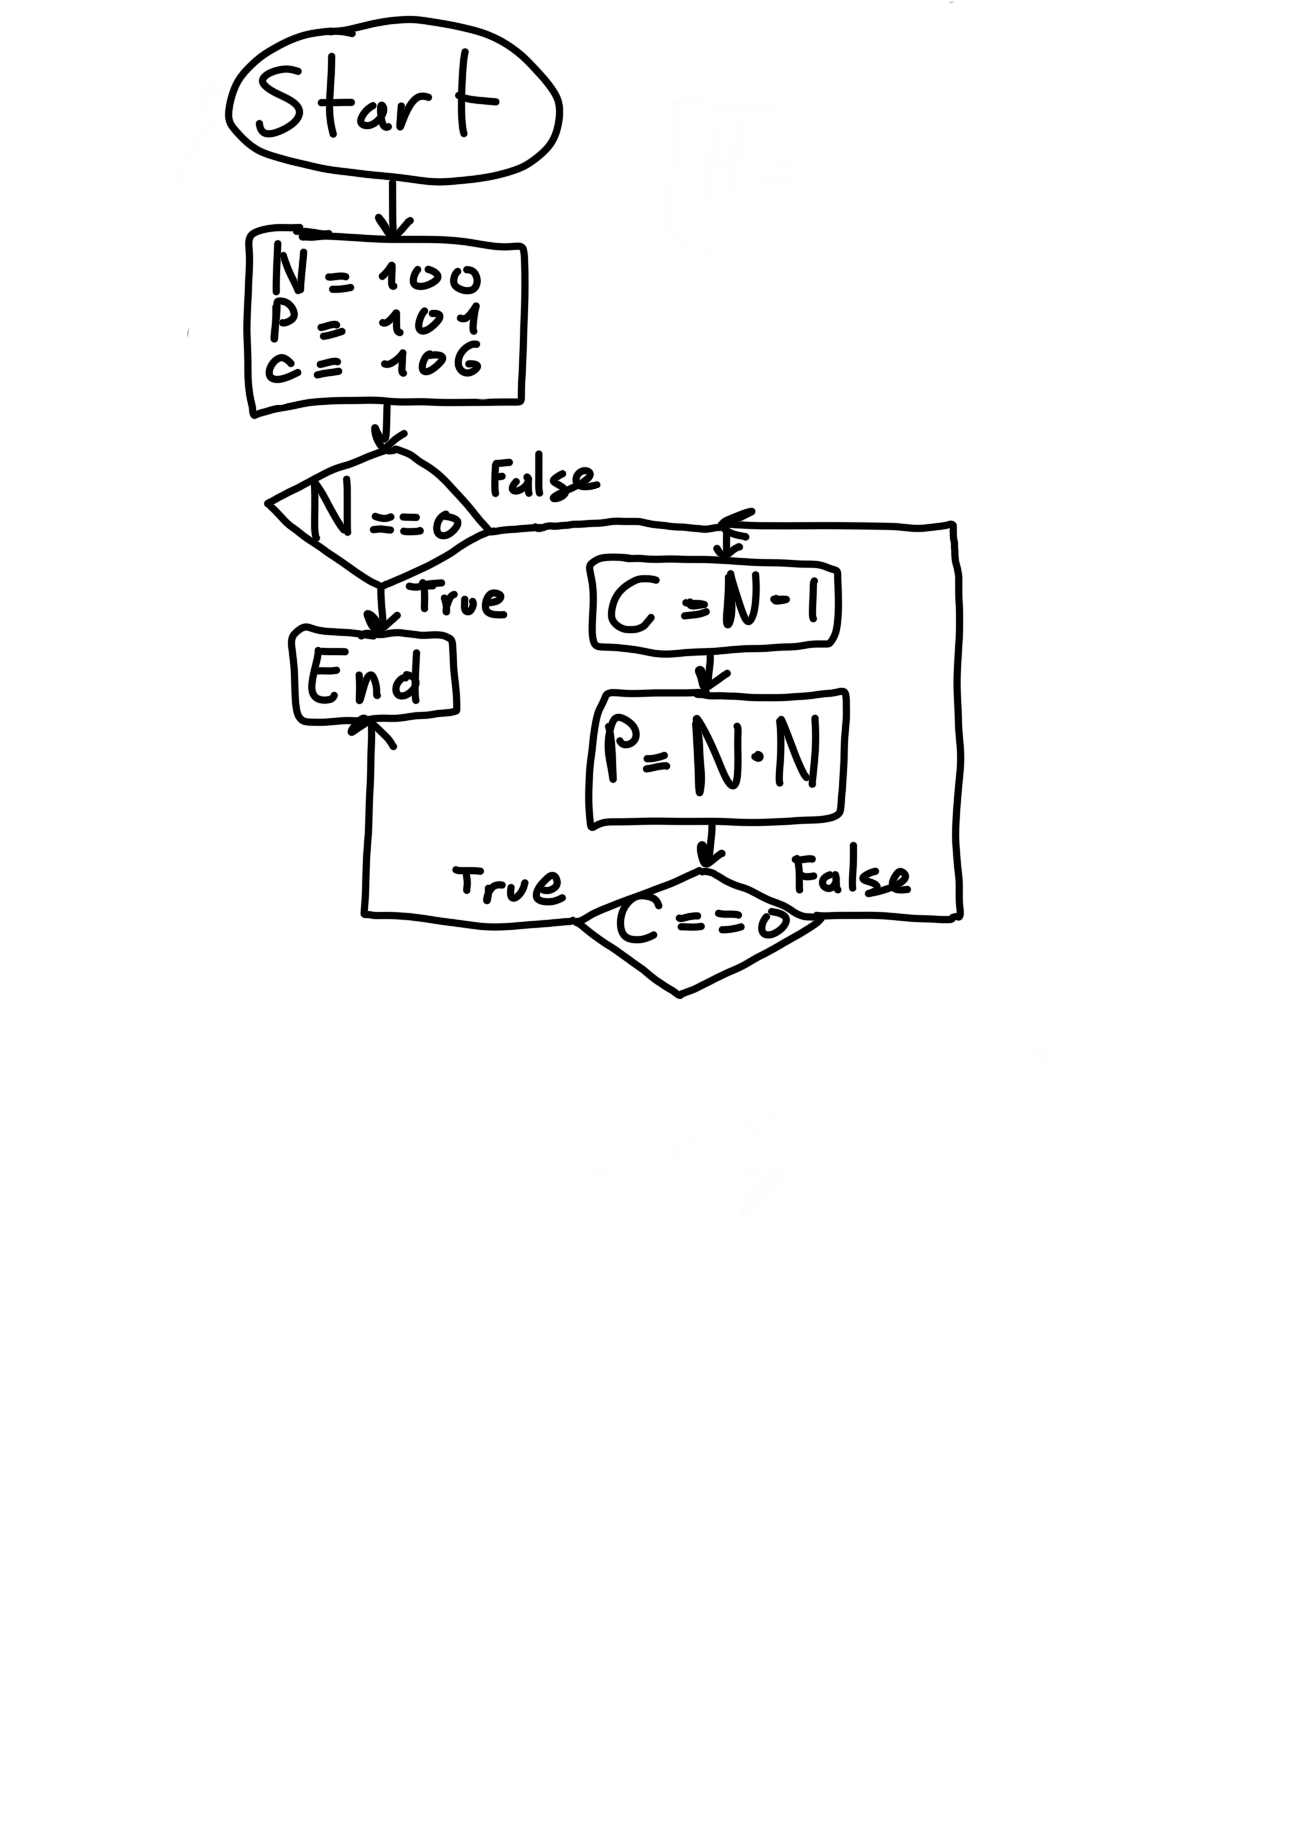 Start
N = 100
P = 101
C = 106
N == 0
False
True
End
C = N - 1
P = N · N
True
False
C == 0